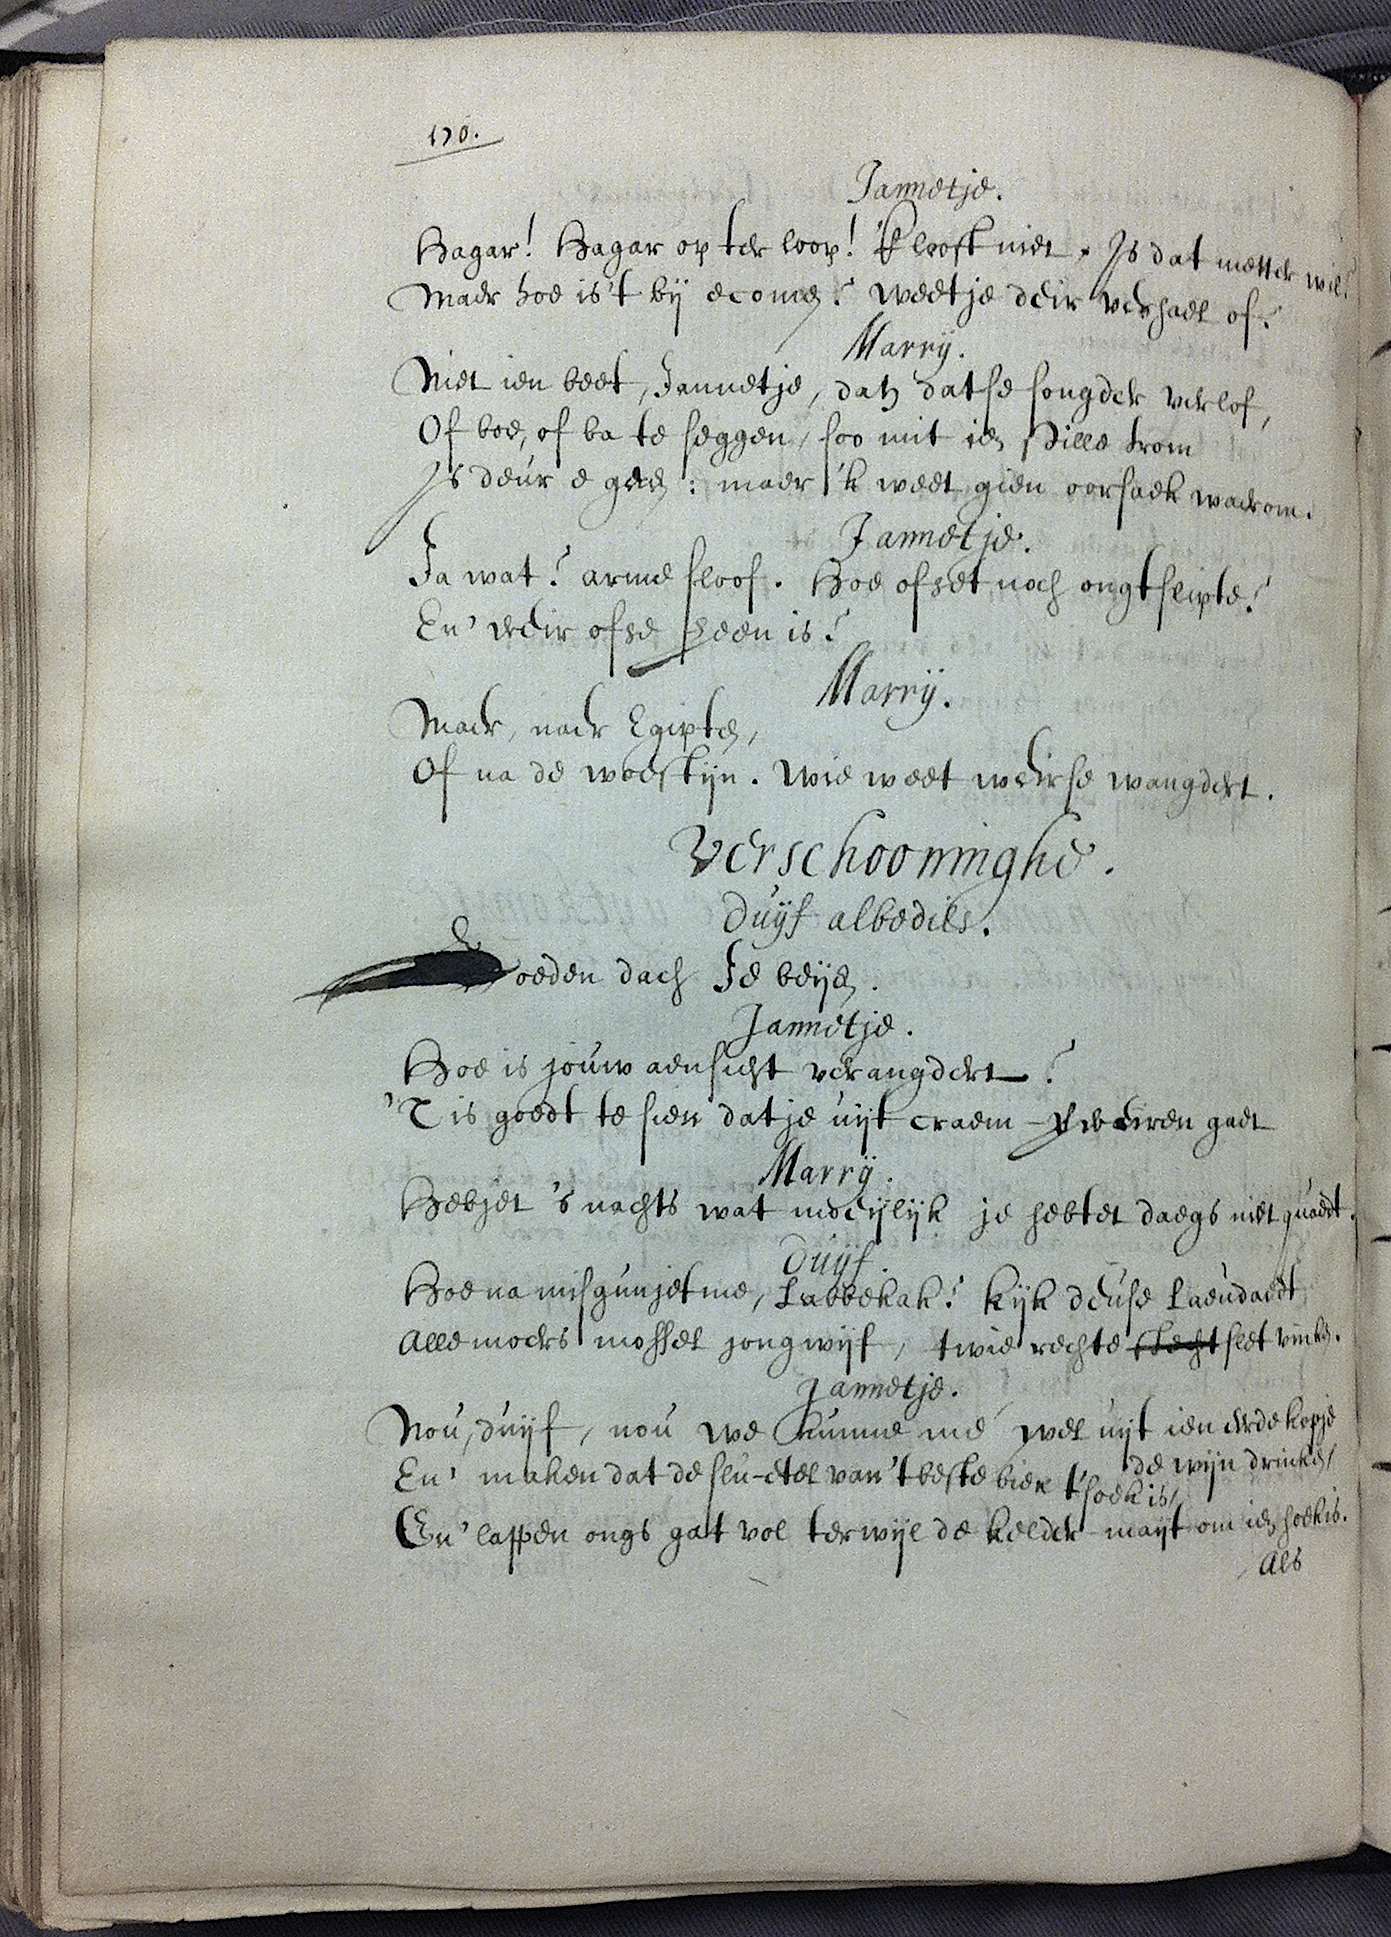 170.
Jannetje.
Hagar! Hagar op ter loop! 'k looft niet, Is dat metter wil?
Maer hoe is't bij ecomen? weetje deir verhael of?
Marrij.
Niet ien beet, Jannetje, dan datse songder verlof,
Of boe, of ba te seggen, soo mit ien stille trom
Is deur e geen: maer 'k weet gien oorsaek waerom.
Jannetje.
Ja wat? arme sloof. Hoe ofset noch ongtslipte?
En' weir ofse heen is?
Marrij.
Maer, naer Egipten,
Of na de woestijn. Wie weet weirse wangdert.
Verschooninghe.
Duijf albedils.
Goeden dach Je beijen.
Jannetje.
Hoe is jouw aensicht verangdert?
'T is goedt te sien datje uijt craem weiren gaet
Marrij.
Hebjet 's nachts wat moeijlijk je hebtet daegs niet quaedt.
Duijf.
Hoe na misgunjetme, Labbekak? kijk deuse Laeudaedt
Allemoers mossel jongwijf, twie rechte slecht slet vinken.
Jannetje.
Nou, duijf, nou we kunne me wel uijt ien erdekopje
de wijn drinken,
En' maken dat de slu-etel van 't beste bier t'soek is,
En' lappen ongs gat vol terwijl de kelder-maijt om ien hoek is.
Als